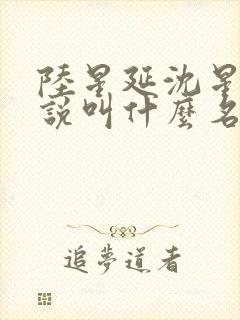 陸星延沈星
說叫什麼名
追夢道者